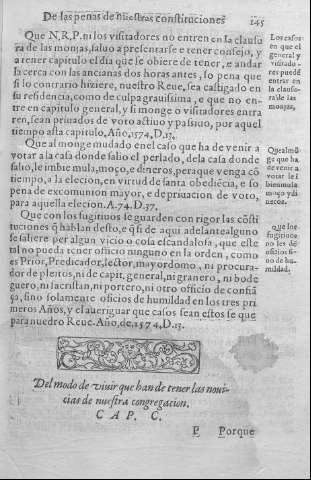 De las penas de nuestras constituciones 145
Que N,R,P. ni los visitadores no entren en la clausu
ra de las monjas, saluo a presentarse e tener consejo, y
a tener capitulo el dia que se obiere de tener, e andar
la cerca con las ancianas dos horas antes, so pena que
si lo contrario hiziere, nuestro Reue, sea castigado en
su residencia, como de culpa grauissima, e que no en-
tre en capitulo general, y si monge o visitadores entra
ren, sean priuados de voto actiuo y passiuo, por aquel
tiempo asta capitulo. Año, 1574, D.13.
Los casos
en que el
general y
visitado-
res puedẽ
entrar en
la clausu-
ra de las
monjas,
Que al monge mudado en el caso que ha de venir a
votar a la casa donde salio el perlado, de la casa donde
salio, le imbie mula, moço, e dineros, pera que venga cõ
tiempo, a la elecion, en virtud de santa obediẽcia, e so
pena de excomunion mayor, e de priuacion de voto,
para aquella elecion. A.74.D.37.
Que al mõ
ge que ha
de venir a
votar le ĩ
bien mula
moço y di
neros.
Que con los fugitiuos se guarden con rigor las cõsti
tuciones q̃ hablan desto, e q̃ si de aqui adelante alguno
se saliere por algun vicio o cosa escandalosa, que este
tal no pueda tener officio ninguno en la orden, como
es Prior, Predicador, lector, mayordomo, ni procura-
dor de pleitos, ni de capit, general, ni granero, ni bode
guero, ni sacristan, ni portero, ni otro officio de confiã
ça, sino solamente oficios de humildad en los tres pri
meros Años, y el aueriguar que casos sean estos se que
para nuestro Reue. Año, de, 1574, D.13.
Que los
fugitiuos
no les dẽ
officios si-
no de hu-
mildad.
Del modo de viuir que han de tener las noui-
cias de nuestra congregacion.
C A P. C.
P Porque